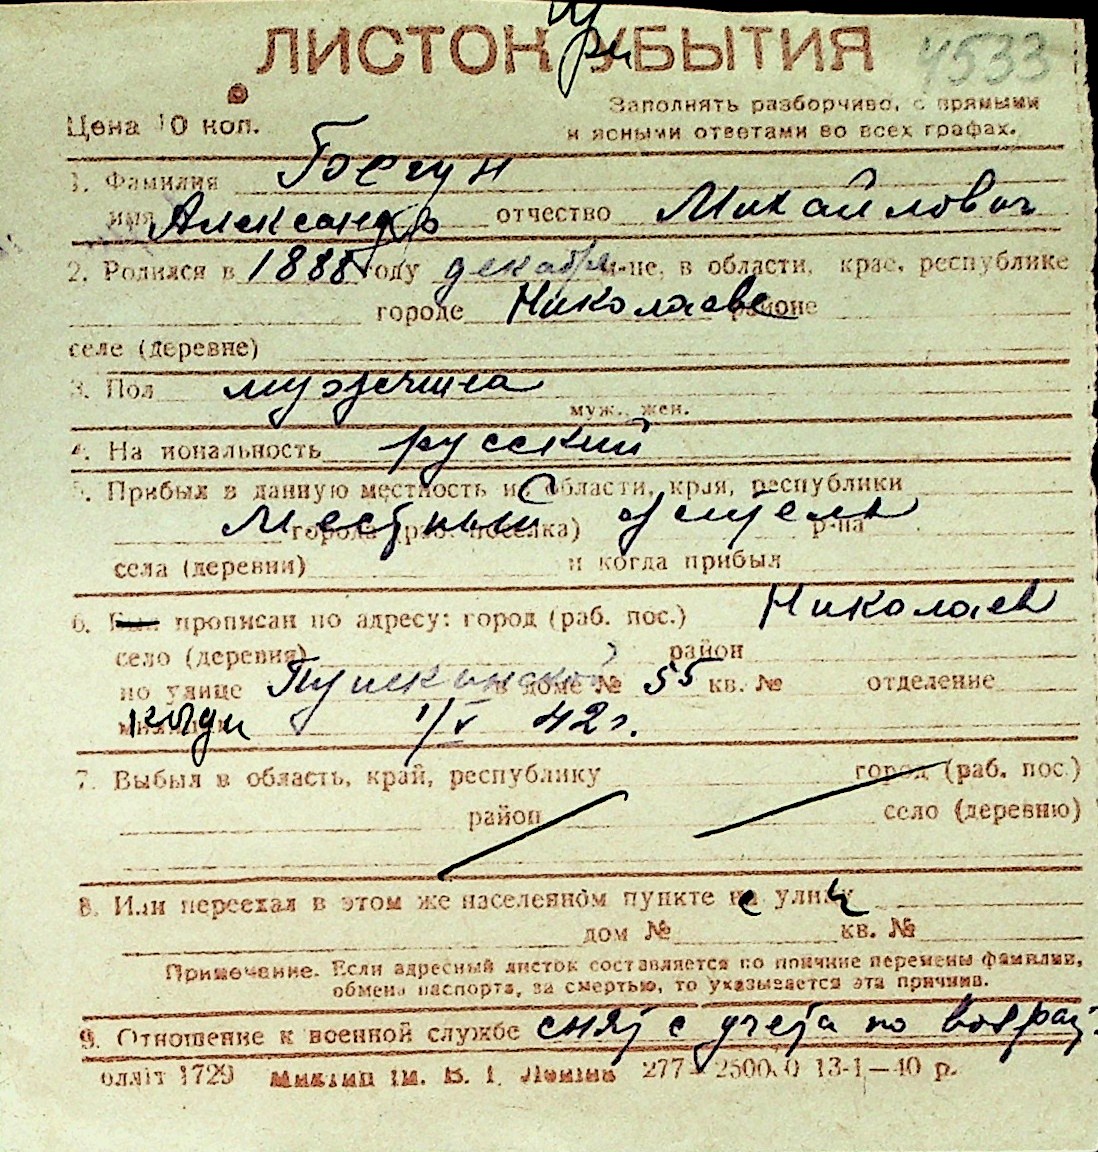 ЛИСТОК УБЫТИЯ
при
4533
Цена 10 коп.
Заполнять разборчиво, с прямыми
и ясными ответами во всех графах.
1. Фамилия Горгун
имя Александр отчество Михайлович
2. Родился в 1888 году декабря м-це, в области, крае, республике
городе Николаеве районе
селе (деревне)
3. Пол мужчина
муж., жен.
4. Национальность русский
5. Прибыл в данную местность из области, края, республики
Местный житель
города (раб. поселка) р-на
села (деревни) и когда прибыл
6. Был прописан по адресу: город (раб. пос.) Николаев
село (деревня) район
по улице Пушкинской в доме № 55 кв. № отделение
милиции когда 1/V 42 г.
7. Выбыл в область, край, республику город (раб. пос.)
район село (деревню)
8. Или переехал в этом же населенном пункте на улицу
дом № кв. №
Примечание. Если адресный листок составляется по причине перемены фамилии,
обмена паспорта, за смертью, то указывается эта причина.
9. Отношение к военной службе снят с учета по возраст
олліт 1729 Миктип ім. В. І. Леніна 277—25000 13-1—40 р.